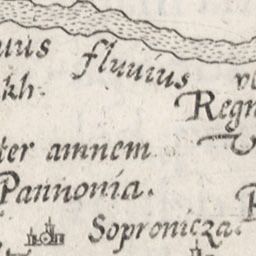 Fluuius
kh.
Regn
ter amnem
Pannonia.
Sopronicza.